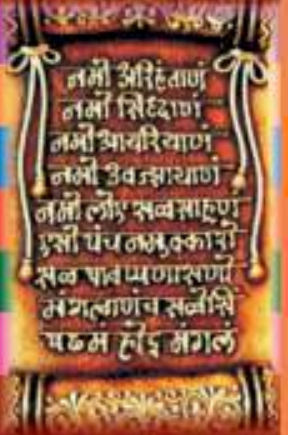 नमो अरिहंताणं
नमो सिद्धाणं
नमो आयरियाणं
नमो उवज्झायाणं
नमो लोए सव्व साहूणं
एसो पंच नमुक्कारो
सव्व पावप्पणासणो
मंगलाणं च सव्वेसिं
पढमं होइ मंगलं